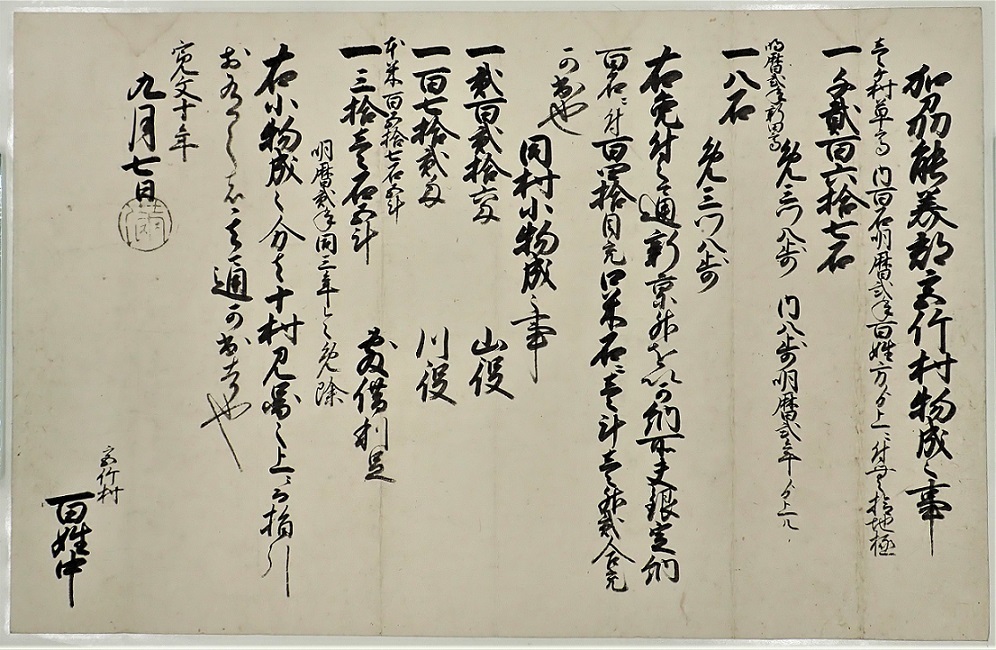 加州能美郡
村物成之事
壱ヶ村草高 内百石明暦弐年百姓方ゟ上ニ付無検地極
一千弐百六拾七石
免三ツ八歩 内八歩明暦弐年ゟ上ル
明暦弐年新田高
一八石
免三ツ八歩
右免付之通新京升を以可納所夫銀定納
百石ニ付百四拾目宛口米石ニ壱斗壱升弐合宛
可出也
同村小物成之事
一弐百弐拾六匁 山役
一百七拾弐匁 川役
本米百五拾七石五斗
一三拾壱石五斗 敷借利足
明暦弐年同三年ニ令免除
右小物成之分者十村見図之上ニ而指引
於有之者其通可出者也
寛文十年
九月七日
村
百姓中